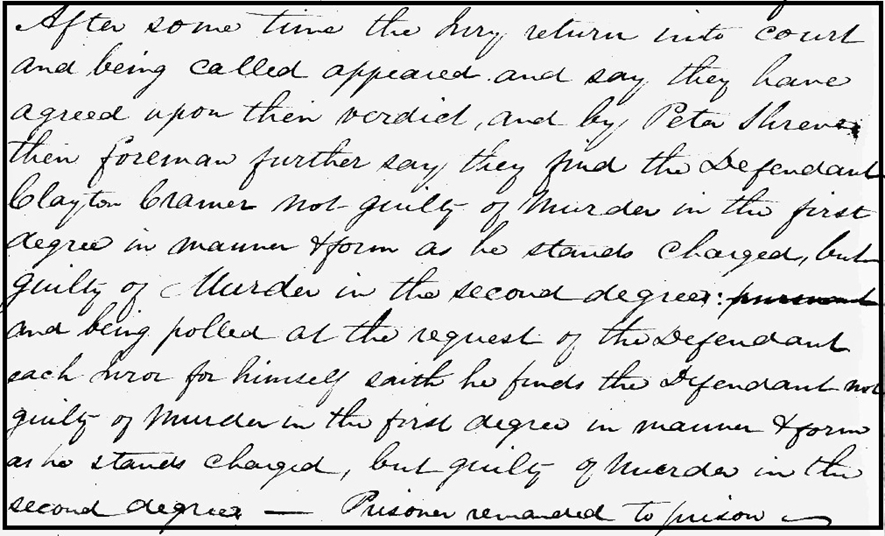 After some time the Jury return into court
and being called appeared and say they have
agreed upon their verdict, and by Peter Shreve
their foreman further say they find the Defendant
Clayton Cramer not guilty of Murder in the first
degree in manner & form as he stands charged, but
guilty of Murder in the second degree:
and being polled at the request of the Defendant
each Juror for himself saith he finds the Defendant not
guilty of Murder in the first degree in manner & form
as he stands charged, but guilty of Murder in the
second degree — Prisoner remanded to prison —